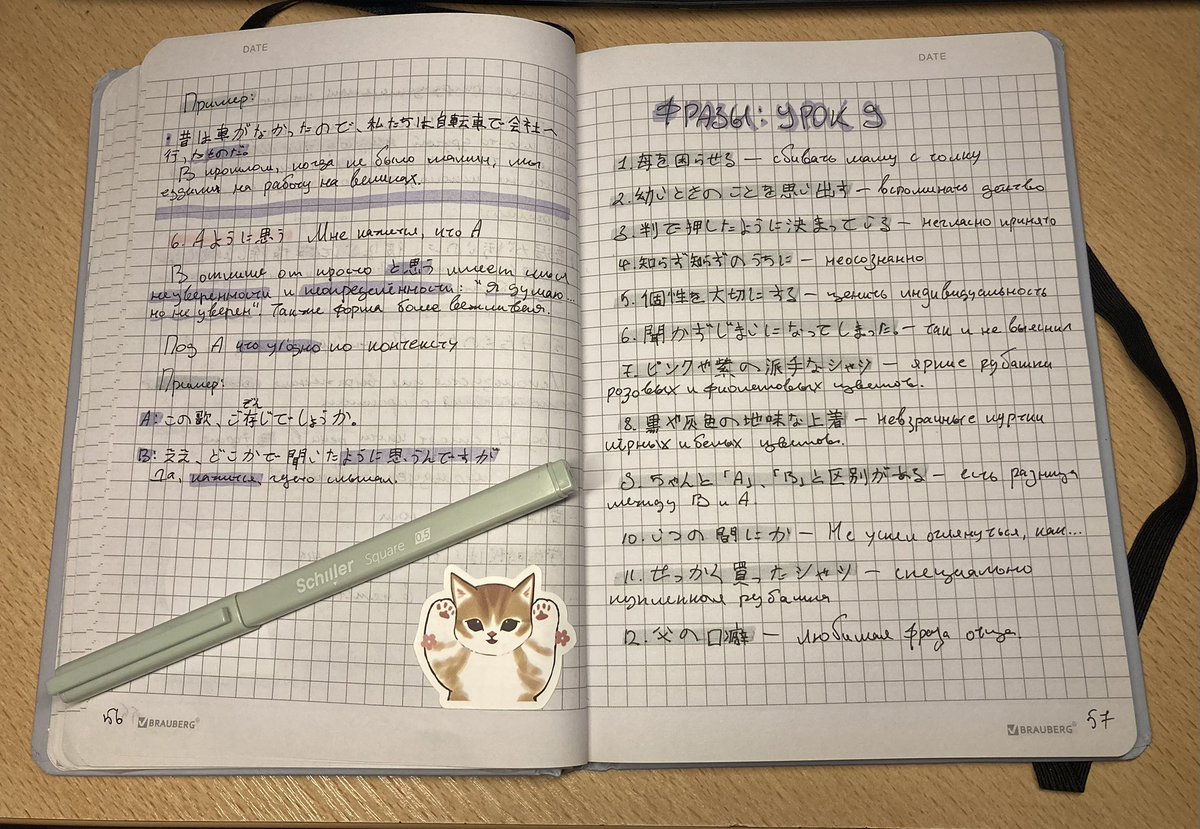 DATE
Пример:
昔は車がなかったので、私たちは自転車で会社へ
行ったものだ。
В прошлом, когда не было машин, мы
ездили на работу на великах.
6. Aように思う Мне кажется, что A
В отличие от просто と思う имеет смысл
неуверенности и неопределённости: "Я думаю...
но не уверен". Также форма более вежливая.
Под A что угодно по контексту
Пример:
ぞん
A: この歌、ご存じでしょうか。
B: ええ、どこかで聞いたように思うんですが
Да, кажется, где-то слышал.
Schiller Square 0.5
56
BRAUBERG®
DATE
ФРАЗЫ: УРОК 9
1. 母を困らせる — сбивать маму с толку
2. 幼いときのことを思い出す — вспоминать детство
3. 判で押したように決まっている — негласно принято
4. 知らず知らずのうちに — неосознанно
5. 個性を大切にする — ценить индивидуальность
6. 聞かずじまいになってしまった。— так и не выяснил
7. ピンクや紫の派手なシャツ — яркие рубашки
розовых и фиолетовых цветов.
8. 黒や灰色の地味な上着 — невзрачные куртки
чёрных и белых цветов.
9. ちゃんと「A」、「B」と区別がある — есть разница
между B и A
10. いつの間にか — Не успел оглянуться, как...
11. せっかく買ったシャツ — специально
купленная рубашка
12.父の口癖 — любимая фраза отца
BRAUBERG®
57